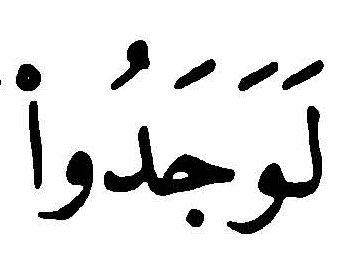 لَوَجَدُوا۟